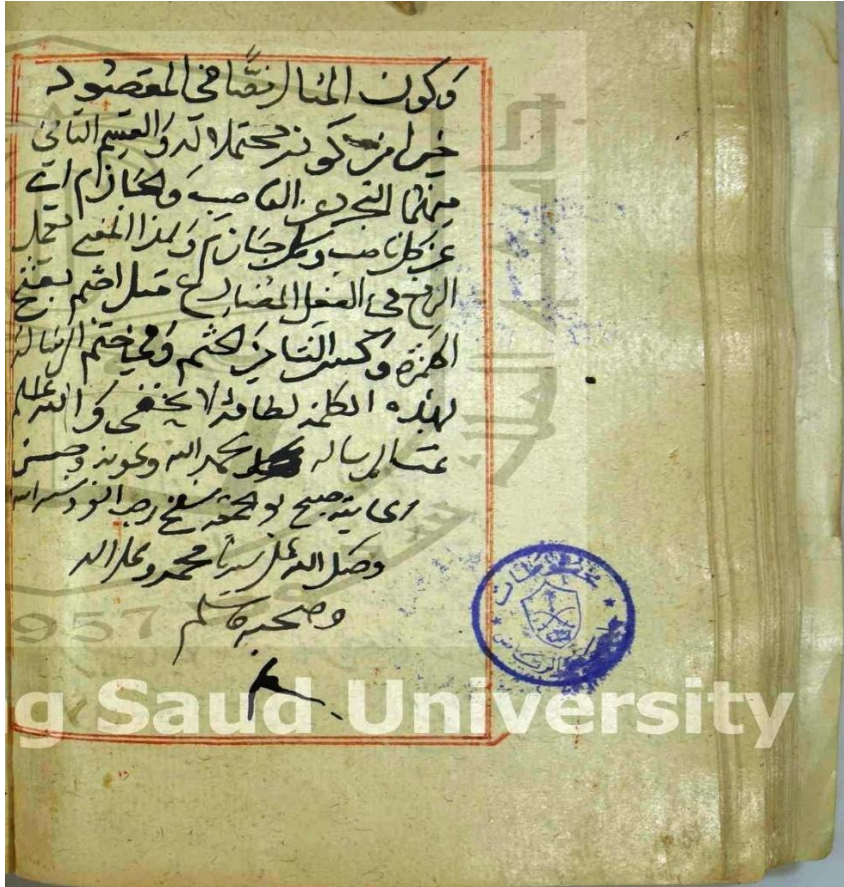 وكون المثال نصًّا في المقصود
خيرا من كونه محتملا له والقسم الثاني
منهما التجرد عن الناصب والجازم اي
عن كل ناصب وكل جازم ولهذا المعنى تعمل
الرفع في الفعل المضارع مثل اختم بفتح
الهمزة وكسر التاء من الختم وفي ختم الرسالة
بهذه الكلمة لطافة لا يخفى والله اعلم
تمت الرسالة بحمد الله وعونه وحسن
صبيح يوم الجمعة سلخ رجب
وصلى الله على سيدنا محمد وعلى اله
وصحبه وسلم
مخطوطات
1957
g Saud University